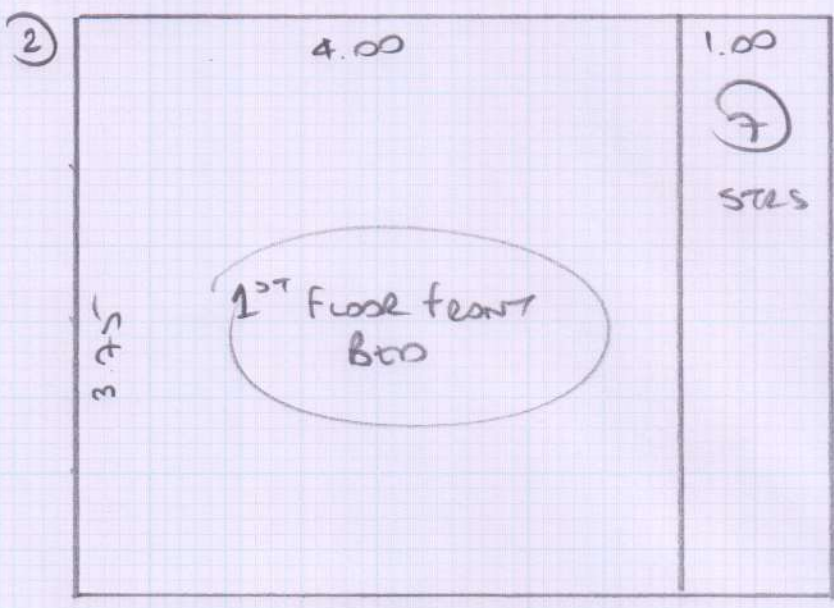 2
4.00
1.00
7
STRS
3.75
1ST FLOOR FRONT
BED